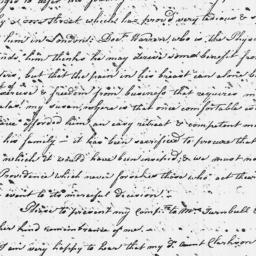 & on Street which has prov'd very tedious &
him in London: Doct. Warren, who is the Phys
ends him thinks he may derive some benefit from
tives, but that the pain in his breast can alone b
ercise & freedom from business that requires m
las! my Susan, where is that once comfortable
have afforded him an easy retreat & competent m
his family – it has been sacrificed to procure that
which it would have been useless, & we must no
Providence which never forsakes those who act their
event to its merciful decision.
Please to present my Comp.ts to Mr. Turnbull &
her kind remembrance of me.
I am very happy to hear that my d. Aunt Clarkson